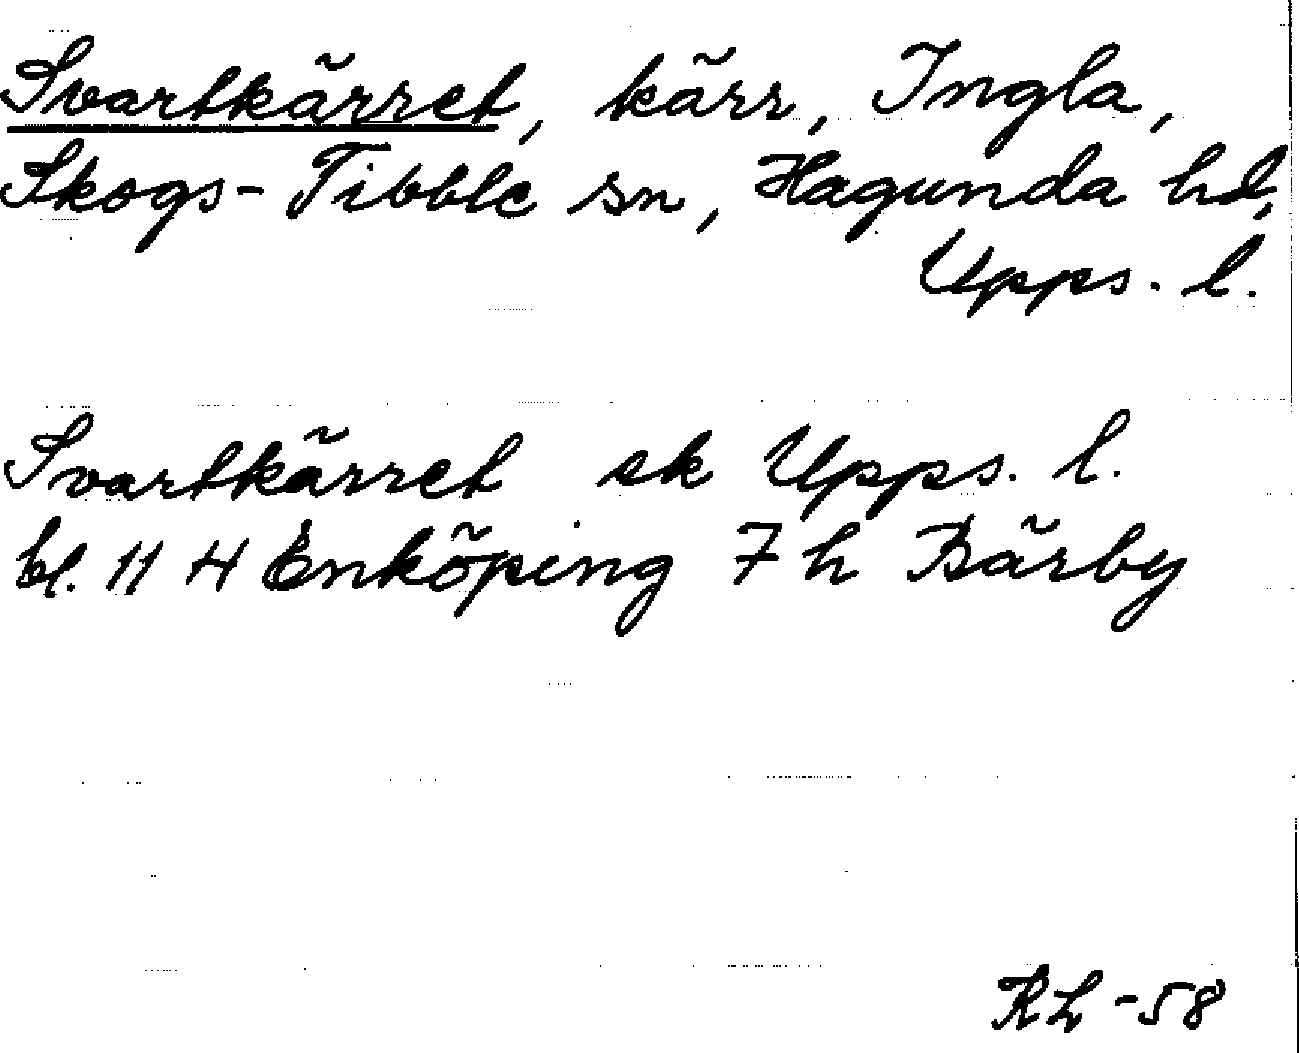 Svartkärret, kärr, Ingla,
Skogs-Tibble sn, Hagunda hd,
Upps. l.
Svartkärret ek Upps. l.
bl. 11 H Enköping 7 h Bärby
RL -58